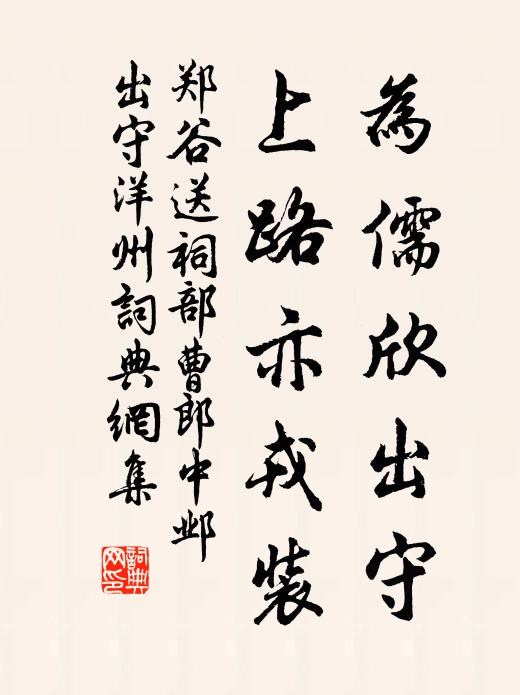 為儒欣出守
上路亦戎裝
郑谷送祠部曹郎中邺
出守洋州詞典網集
詞典网印